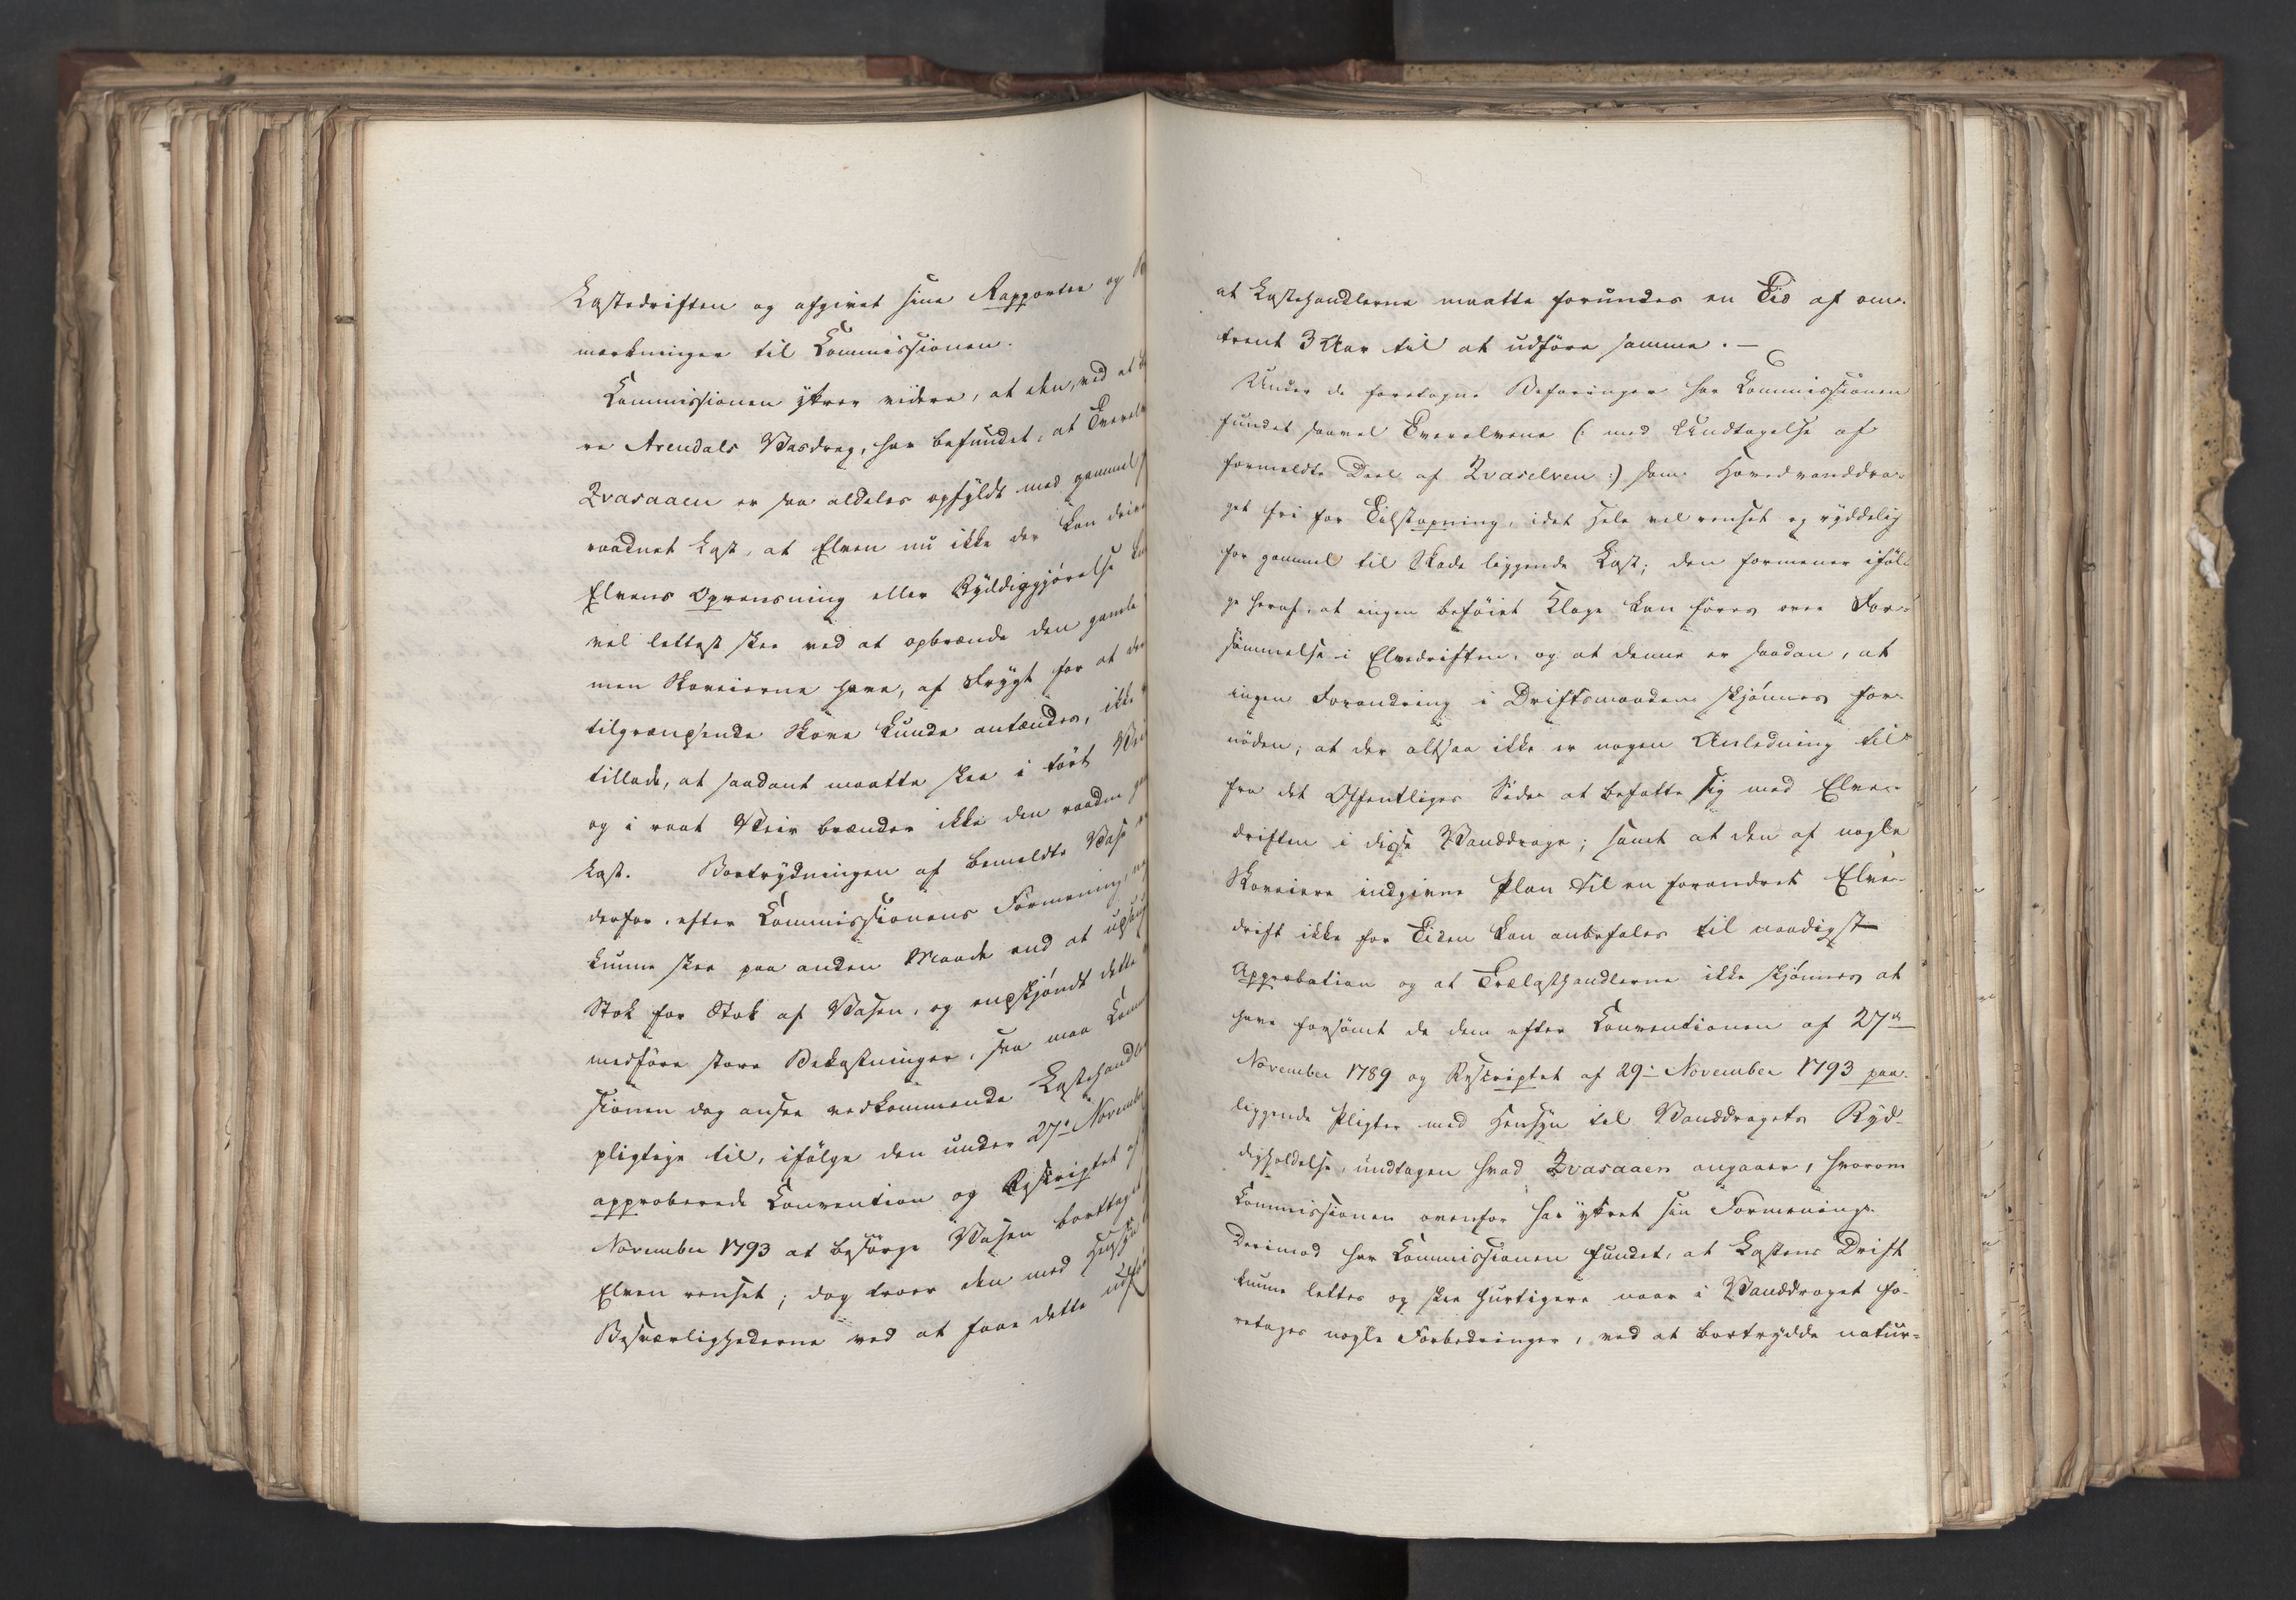 Lastedriften og afgivet sine Rapporter og
mærkninger til Commissionen.
Commissionen yttrer videre, at den, ved at
re Arendals Vasdrag, har befundet, at Tverelv
Qvasaaen er saa aldeles opfyldt med gammel
raadnet Last, at Elven nu ikke der kan
Elvens Oprensning eller Ryddiggjørelse
vel lettest skee ved at opbrænde den gamle
men Skoveierne have, af Frygt for at
tilgrændsende Skove kunde antændes, ikke
tillade, at saadant maatte skee i tørt
og i vaat Veir brænder ikke den raadne
Last. Bortrydningen af bemeldte Vase
derfor, efter Commissionens Formening,
kunne skee paa anden Maade end at
Stok for Stok af Vasen, og enskjøndt dette
medføre store Bekostninger, saa maa
sionen dog ansee vedkommende Lastehandle
pligtige til, ifølge den under 27de November
approberede Convention og Rescriptet af
November 1793 at besørge Vasen borttaget
Elven renset; dog troer den med Hensyn
Besværlighederne ved at faae dette
at Lastehandlerne maatte forundes en Tid af om-
trent 3 Aar til at udføre samme. —
Under de foretagne Befaringer har Commissionen
fundet saavel Tverelvene (: med Undtagelse af
formeldte Deel af Qvaselven :) som Hovedvanddra-
get fri for Tilstopning, idet Hele vel renset og ryddelig
for gammel til Skade liggende Last; den formener iføl-
ge heraf, at ingen beføiet Klage kan føres over For-
sømmelse i Elvedriften, og at denne er saadan, at
ingen Forandring i Driftsmaaden skjønnes for-
nöden, at der altsaa ikke er nogen Anledning til
fra det Offentliges Side at befatte sig med Elve-
driften i disse Vanddrage; samt at den af nogle
Skoveiere indgivne Plan til en forandret Elve-
drift ikke for Tiden kan anbefales til naadigst
Approbation og at Trælasthandlerne ikke skjønnes at
have forsömt de dem efter Conventionen af 27de
November 1789 og Rescriptet af 29de November 1793 paa-
liggende Pligter med Hensyn til Vanddragets Ryd-
digholdelse, undtagen hvad Qvasaaen angaaer, hvorom
Commissionen ovenfor har yttret sin Formening.
Derimod har Commissionen fundet, at Lastens Drift
kunne lettes og skee hurtigere naar i Vanddraget fo-
retages nogle Forbedringer, ved at bortrydde natur-